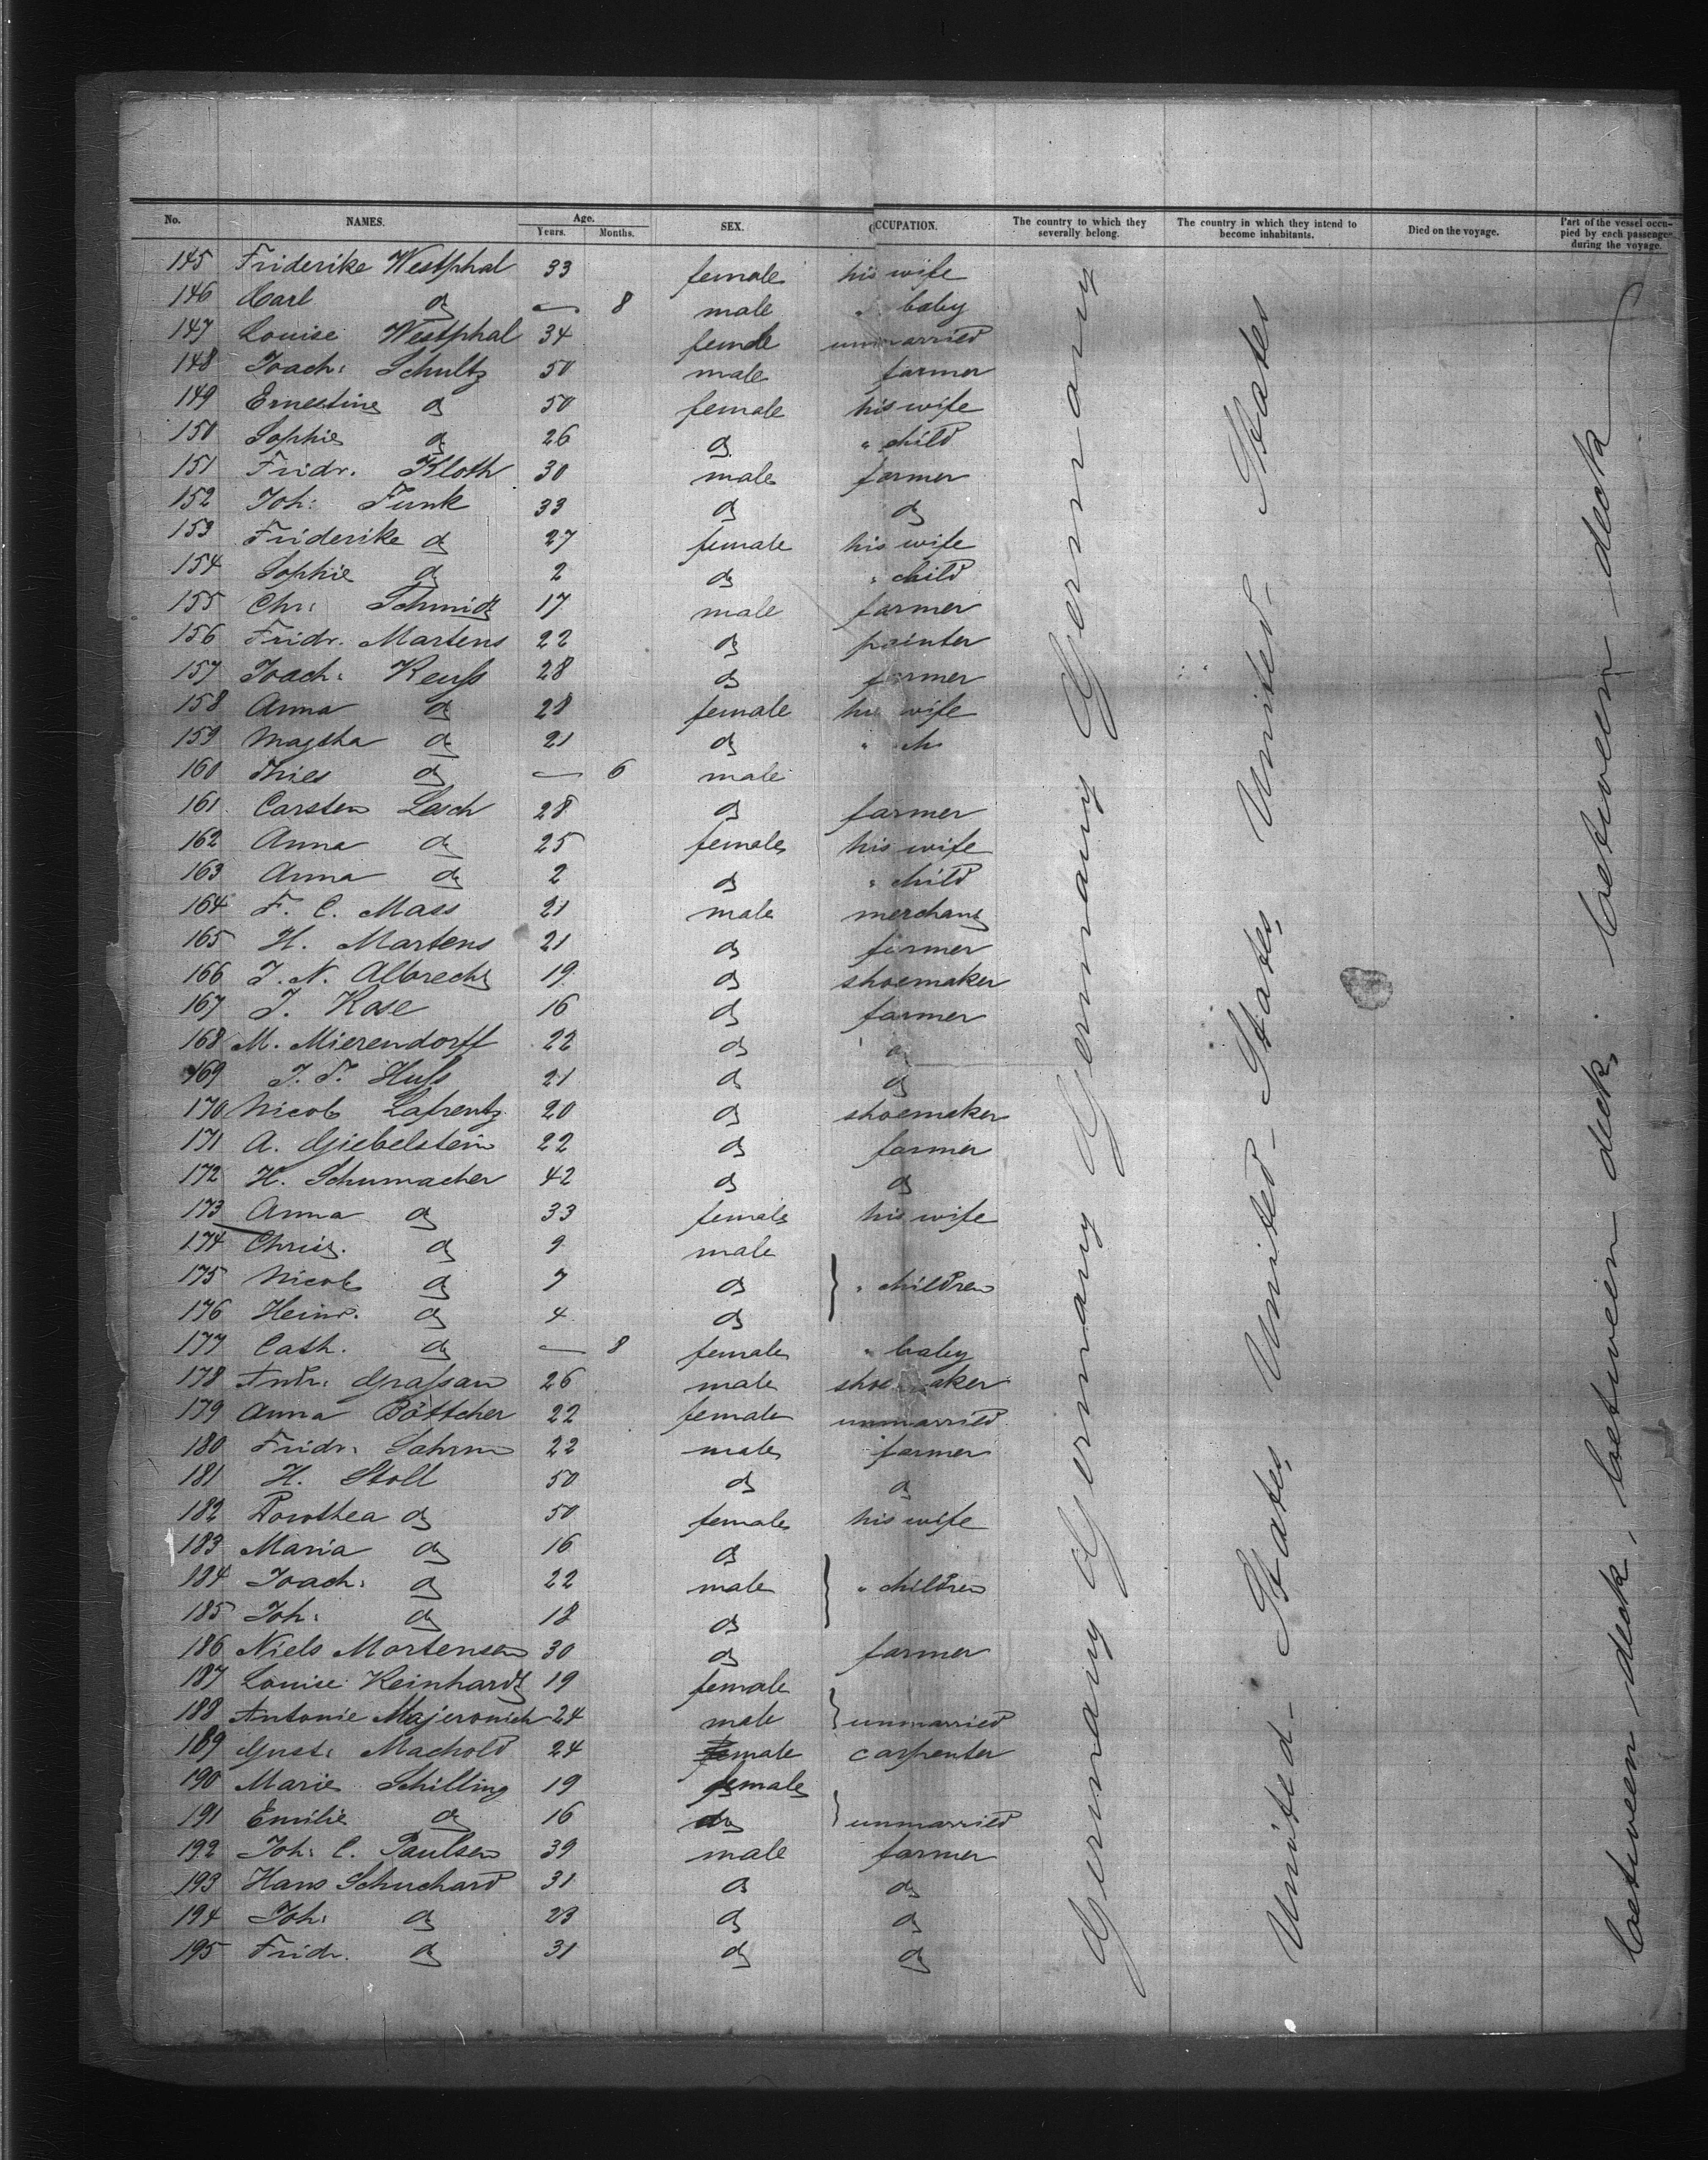 No. NAMES. Age. Years. Months. SEX. OCCUPATION. The country to which they severally belong. The country in which they intend to become inhabitants. Died on the voyage. Part of the vessel occupied by each passenger during the voyage.
145 Friderike Westphal 33 female his wife
146 Carl do — 8 male " baby
147 Louise Westphal 34 female unmarried
148 Joach: Schultz 50 male farmer
149 Ernestine do 50 female his wife
150 Sophie do 26 do " child
151 Fridr. Kloth 30 male farmer
152 Joh: Funk 33 do do
153 Friderike do 27 female his wife
154 Sophie do 2 do " child
155 Chr: Schmidt 17 male farmer
156 Fridr. Martens 22 do painter
157 Joach: Reuss 28 do farmer
158 Anna do 28 female his wife
159 do 21 do "
160 Thies do — 6 male
161 Carsten Lesch 28 do farmer
162 Anna do 25 female his wife
163 Anna do 2 do " child
164 F. C. Mass 21 male merchant
165 H. Martens 21 do farmer
166 J. N. Albrecht 19 do shoemaker
167 J. Kose 16 do farmer
168 M. Mierendorff 22 do do
169 J. F. Huss 21 do do
170 Nicol Lafrentz 20 do shoemaker
171 A. Giebelstein 22 do farmer
172 H. Schumacher 42 do do
173 Anna do 33 female his wife
174 Christ. do 9 male
175 Nicol do 7 do " children
176 Heinr. do 4 do
177 Cath. do — 8 female " baby
178 Andr: Grassau 26 male shoemaker
179 Anna Böttcher 22 female unmarried
180 Fridr: Sahrm 22 male farmer
181 H. Stoll 50 do do
182 Dorothea do 50 female his wife
183 Maria do 16 do
184 Joach: do 22 male " children
185 Joh: do 18 do
186 Niels Mortensen 30 do farmer
187 Louise Reinhardt 19 female
188 Antonie Majerowich 24 male unmarried
189 Gust: Machold 24 male carpenter
190 Marie Schilling 19 female
191 Emilie do 16 do unmarried
192 Joh: C. Paulsen 39 male farmer
193 Hans Schuchard 31 do do
194 Joh: do 23 do do
195 Fridr. do 31 do do
Germany Germany Germany Germany
United-States United-States United-States
between deck, between deck, between-deck